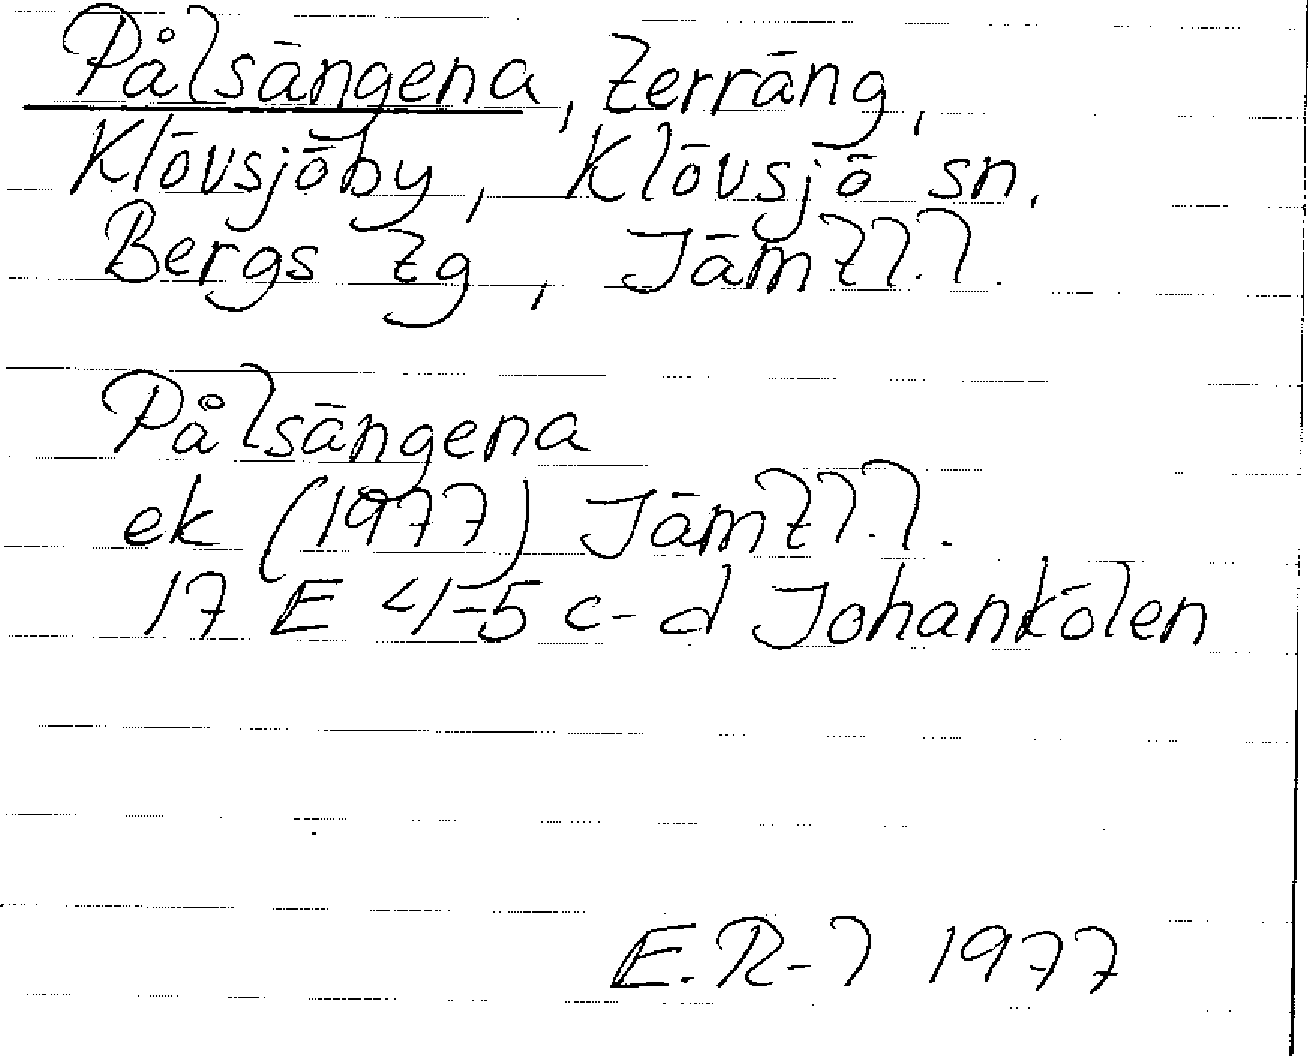 Pålsängena, terräng,
Klövsjöby, Klövsjö sn.
Bergs tg, Jämtl.l.
Pålsängena
ek (1977) Jämtl.l.
17 E 4-5 c-d Johankölen
E.R-l 1977